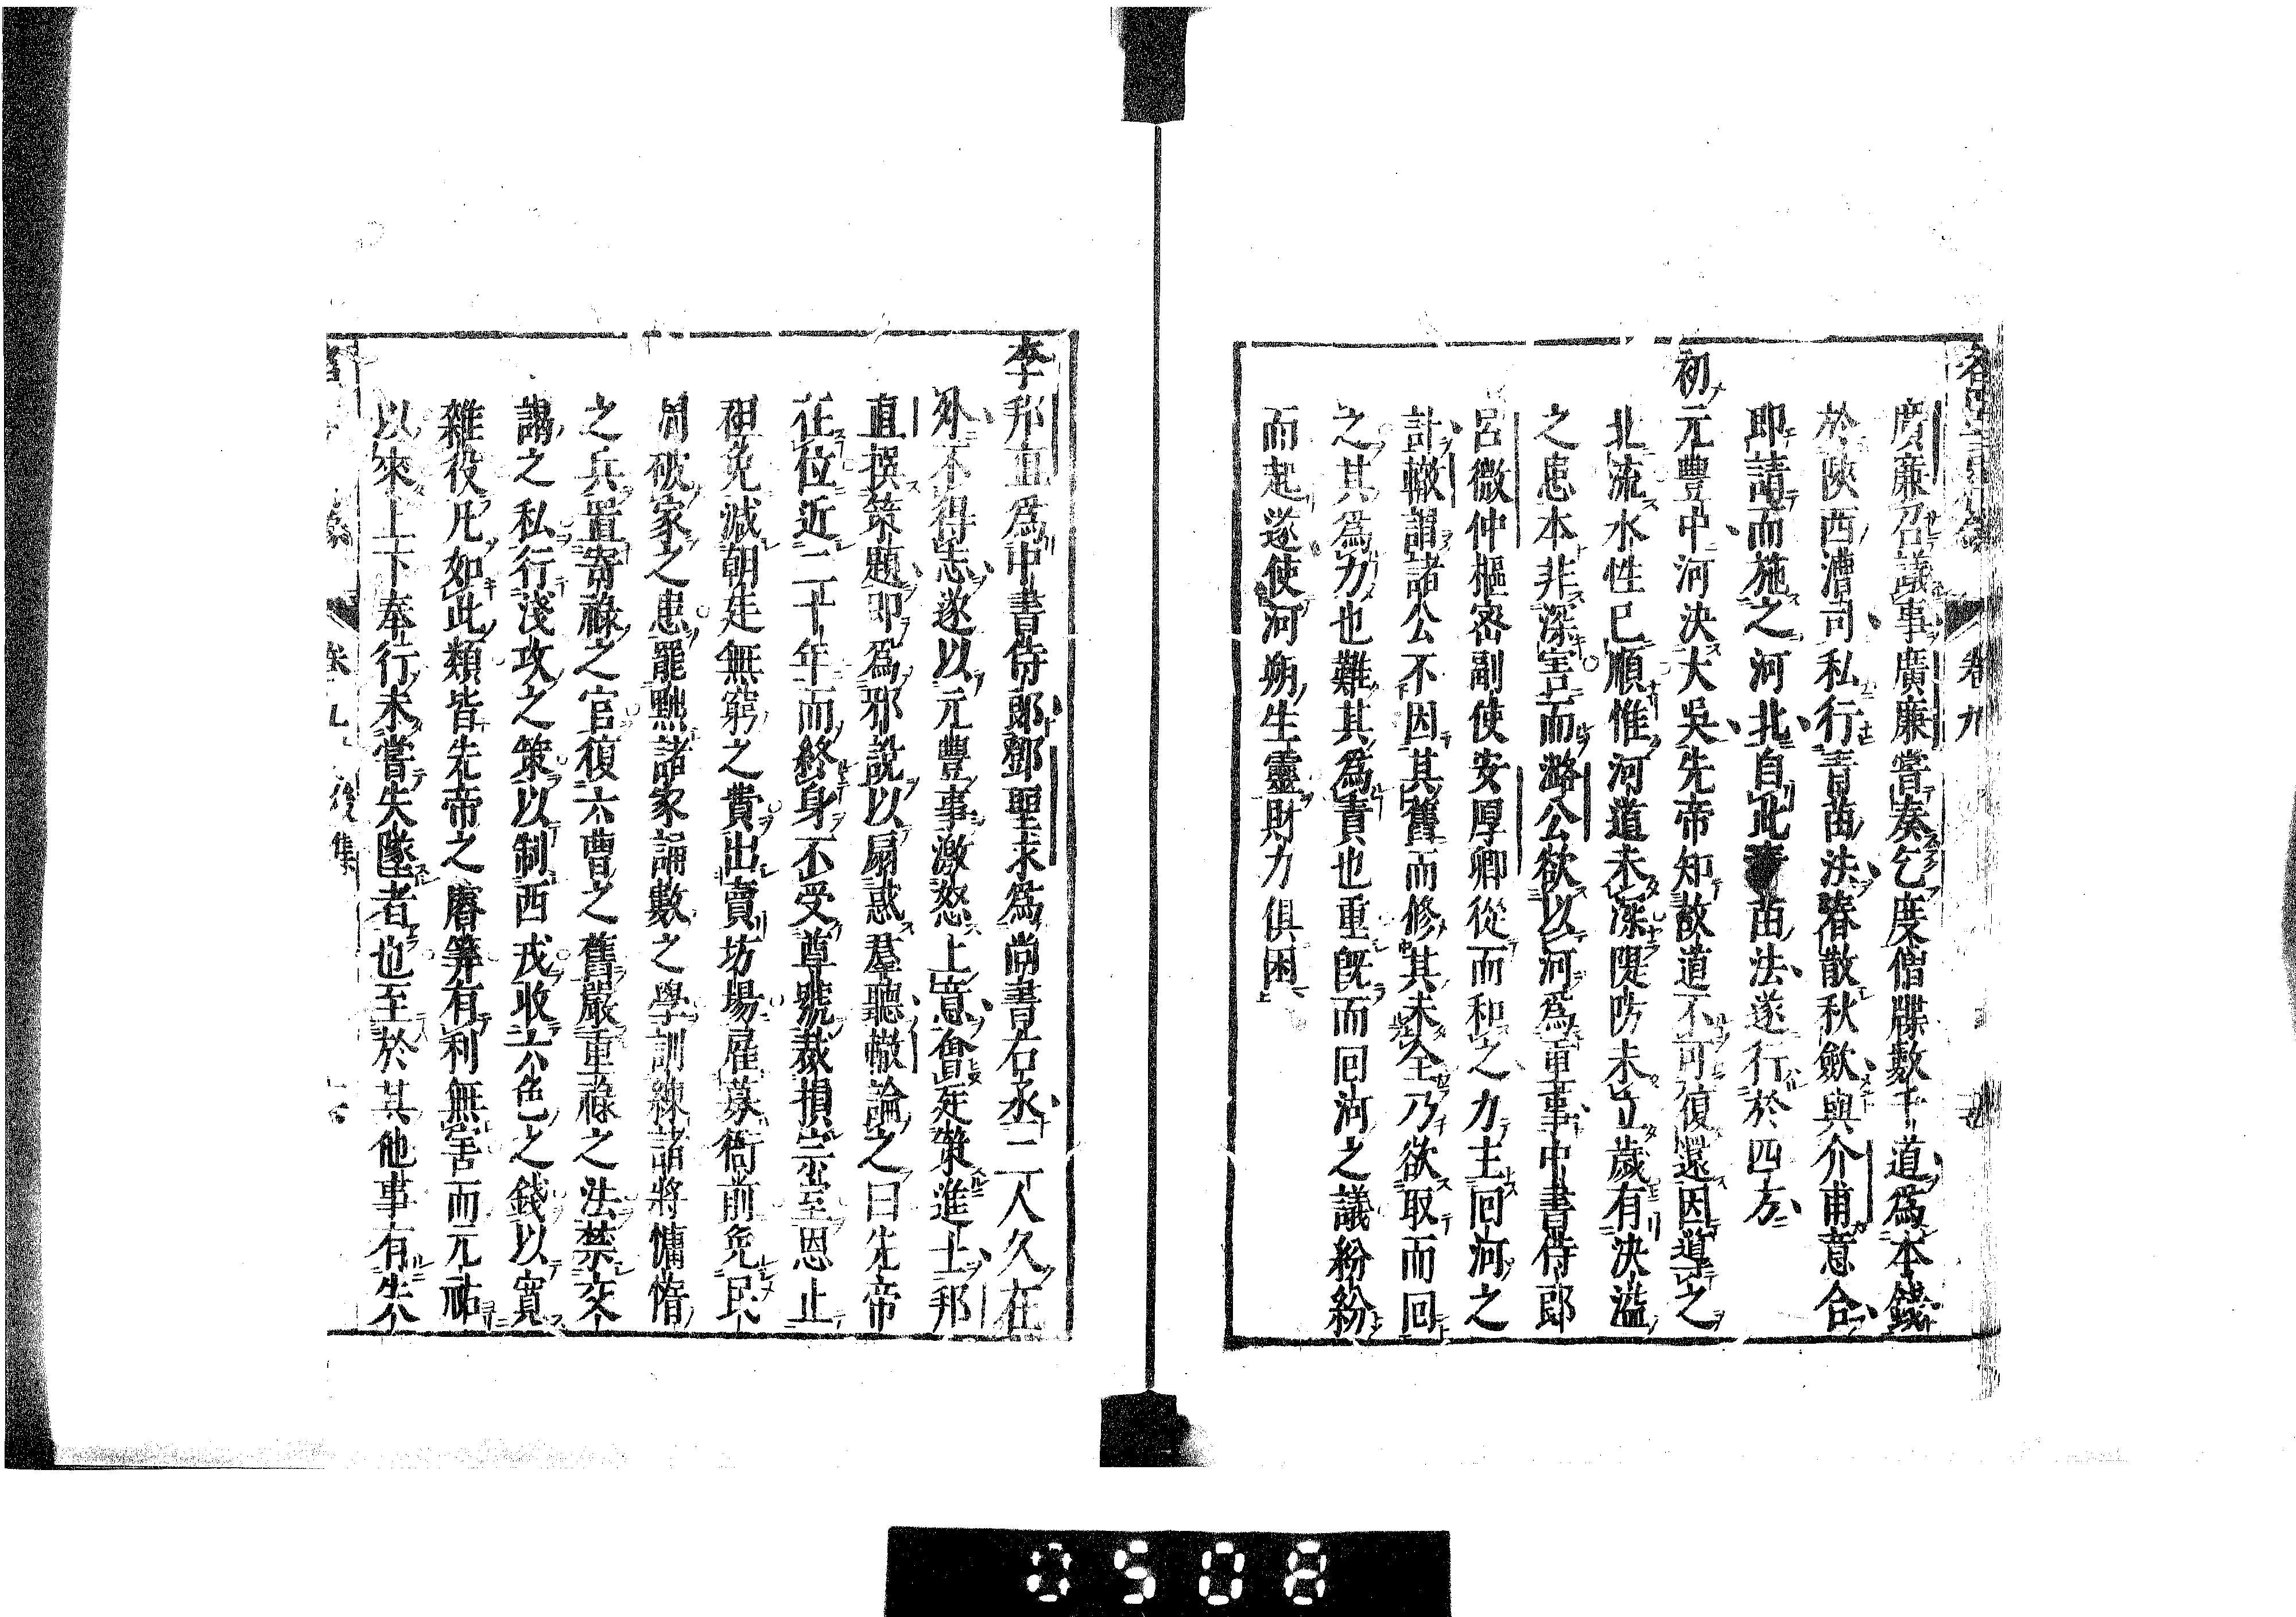 廣廉召議事廣廉嘗奏乞度僧牒數千道爲本錢
於陝西漕司私行青苗法春散秋歛與介甫意合
即請而施之河北自此青苗法遂行於四方
初元豐中河決大吳先帝知故道不可復還因導之
北流水性已順惟河道未深隄防未立歲有決溢
之患本非深害而潞公欲以河爲重事中書侍郎
呂微仲樞密副使安厚卿從而和之力主回河之
計轍謂諸公不因其舊而修其未全乃欲取而回
之其爲力也難其爲責也重旣而回河之議紛紛
而起遂使河朔生靈財力俱困
卷九
李邦直爲中書侍郎鄧聖求爲尚書右丞二人久在
外不得志遂以元豐事激怒上意會廷策進士邦
直撰策題即爲邪說以扇惑羣聽轍論之曰先帝
在位近二十年而終身不受尊號裁損宗室恩止
袒免減朝廷無窮之費出賣坊場雇募衙前免民
間破家之患罷黜諸家誦數之學訓練諸將慵惰
之兵置寄祿之官復六曹之舊嚴重祿之法禁交
謁之私行淺攻之策以制西戎收六色之錢以寬
雜役凡如此類皆先帝之睿筭有利無害而元祐
以來上下奉行未嘗失墜者也至於其他事有失
後集
0508